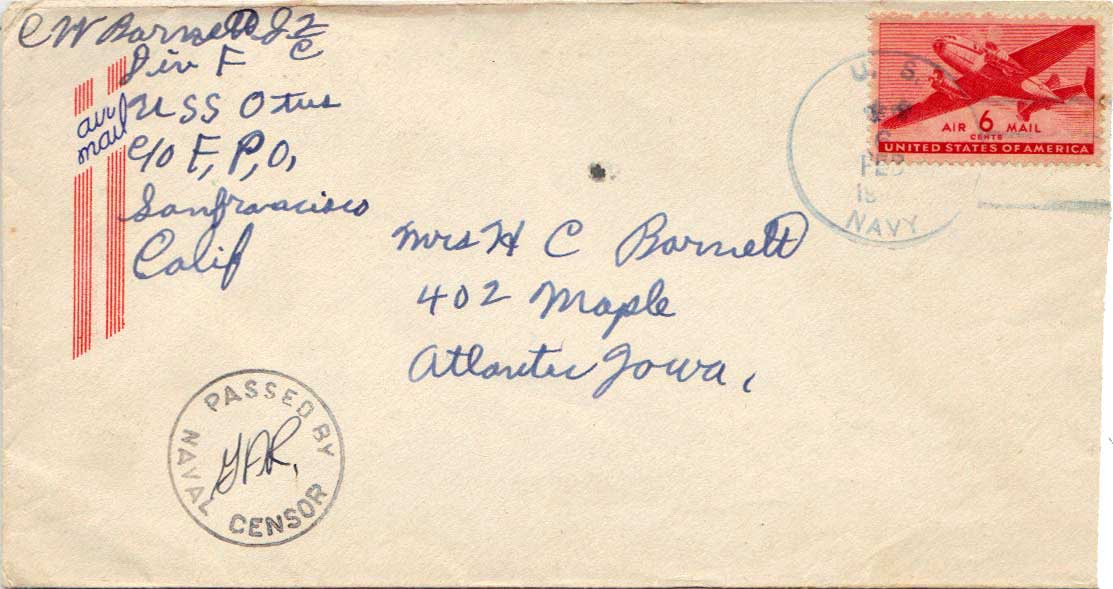 C W Barnett S 2/C
Div F
USS Otus
C/O F, P, O,
San Francisco
Calif
air
mail
Mrs H C Barnett
402 Maple
Atlantic Iowa,
U. S.
6
FEB
NAVY
AIR 6 MAIL
CENTS
UNITED STATES OF AMERICA
PASSED BY
NAVAL CENSOR